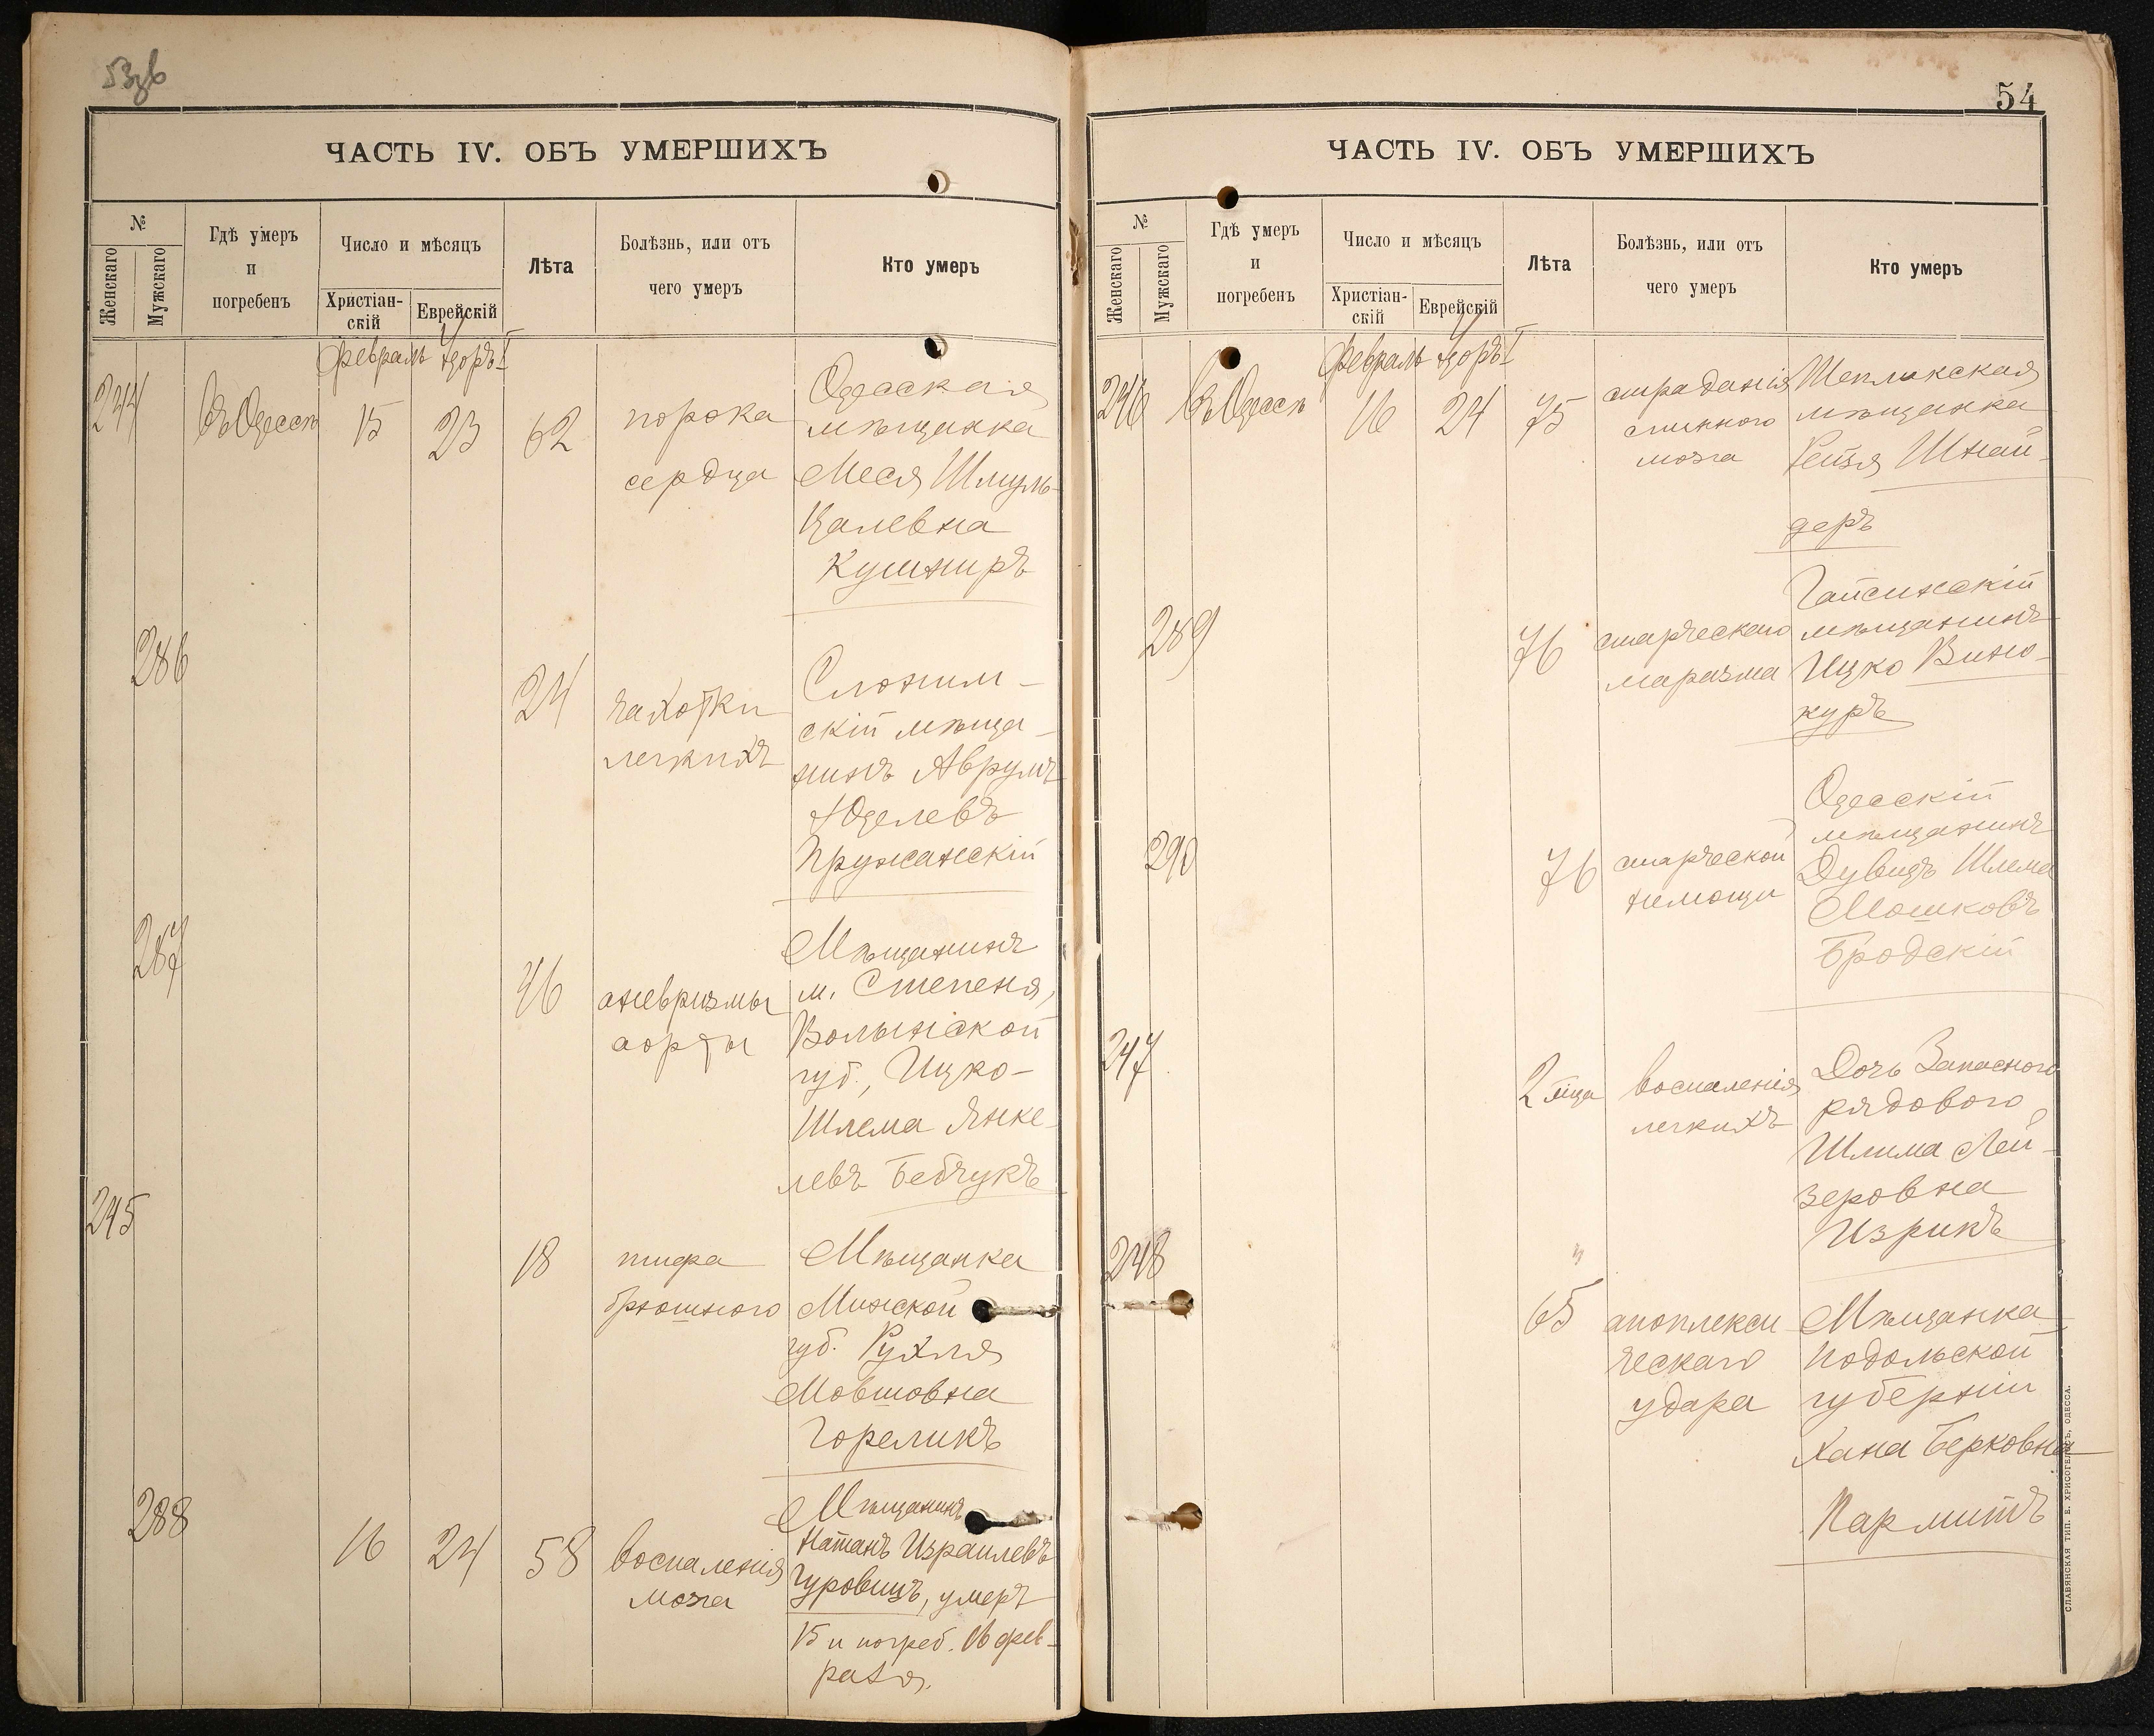 53об
ЧАСТЬ IV. ОБЪ УМЕРШИХЪ
№
Женскаго
Мужскаго
Гдѣ умеръ
и
погребенъ
Число и мѣсяцъ
Христіан-
скій
Еврейскій
Лѣта
Болѣзнь, или отъ
чего умеръ
Кто умеръ
Февраль Адоръ I
244
въ Одессѣ
15
23
62
порока
сердца
Одесская
мѣщанка
Меся Шмуль-
Цалевна
Кушниръ
286
24
чахотки
легкихъ
Слоним-
скій мѣща-
нинъ Аврумъ
Юделевъ
Пружанскій
287
46
аневризмы
аорты
Мѣщанинъ
м. Степеня,
Волынской
губ., Ицко-
Шлема Янке-
левъ Бебчукъ
245
18
тифа
брюшного
Мѣщанка
Минской
губ. Рухля
Мовшовна
Гореликъ
288
16
24
58
воспаленія
мозга
Мѣщанинъ
Натанъ Израилевъ
Гуровицъ, умеръ
15 и погреб. 16 фев-
раля.
54
ЧАСТЬ IV. ОБЪ УМЕРШИХЪ
№
Женскаго
Мужскаго
Гдѣ умеръ
и
погребенъ
Число и мѣсяцъ
Христіан-
скій
Еврейскій
Лѣта
Болѣзнь, или отъ
чего умеръ
Кто умеръ
Февраль Адоръ I
246
въ Одессѣ
16
24
75
страданія
спинного
мозга
Тепликская
мѣщанка
Рейзя Шнай-
деръ
289
76
старческаго
маразма
Гайсинскій
мѣщанинъ
Ицко Вино-
куръ
290
76
старческой
немощи
Одесскій
мѣщанинъ
Дувидъ Шлема
Мошковъ
Бродскій
247
2 мца
воспаленія
легкихъ
Дочь Запасного
рядового
Шлима Лей-
зеровна
Изрикъ
248
65
апоплекси
ческаго
удара
Мѣщанка
Подольской
губерніи
Хана Берковна
Пармитъ
СЛАВЯНСКАЯ ТИП. Е. ХРИСОГЕЛОСЪ, ОДЕССА.